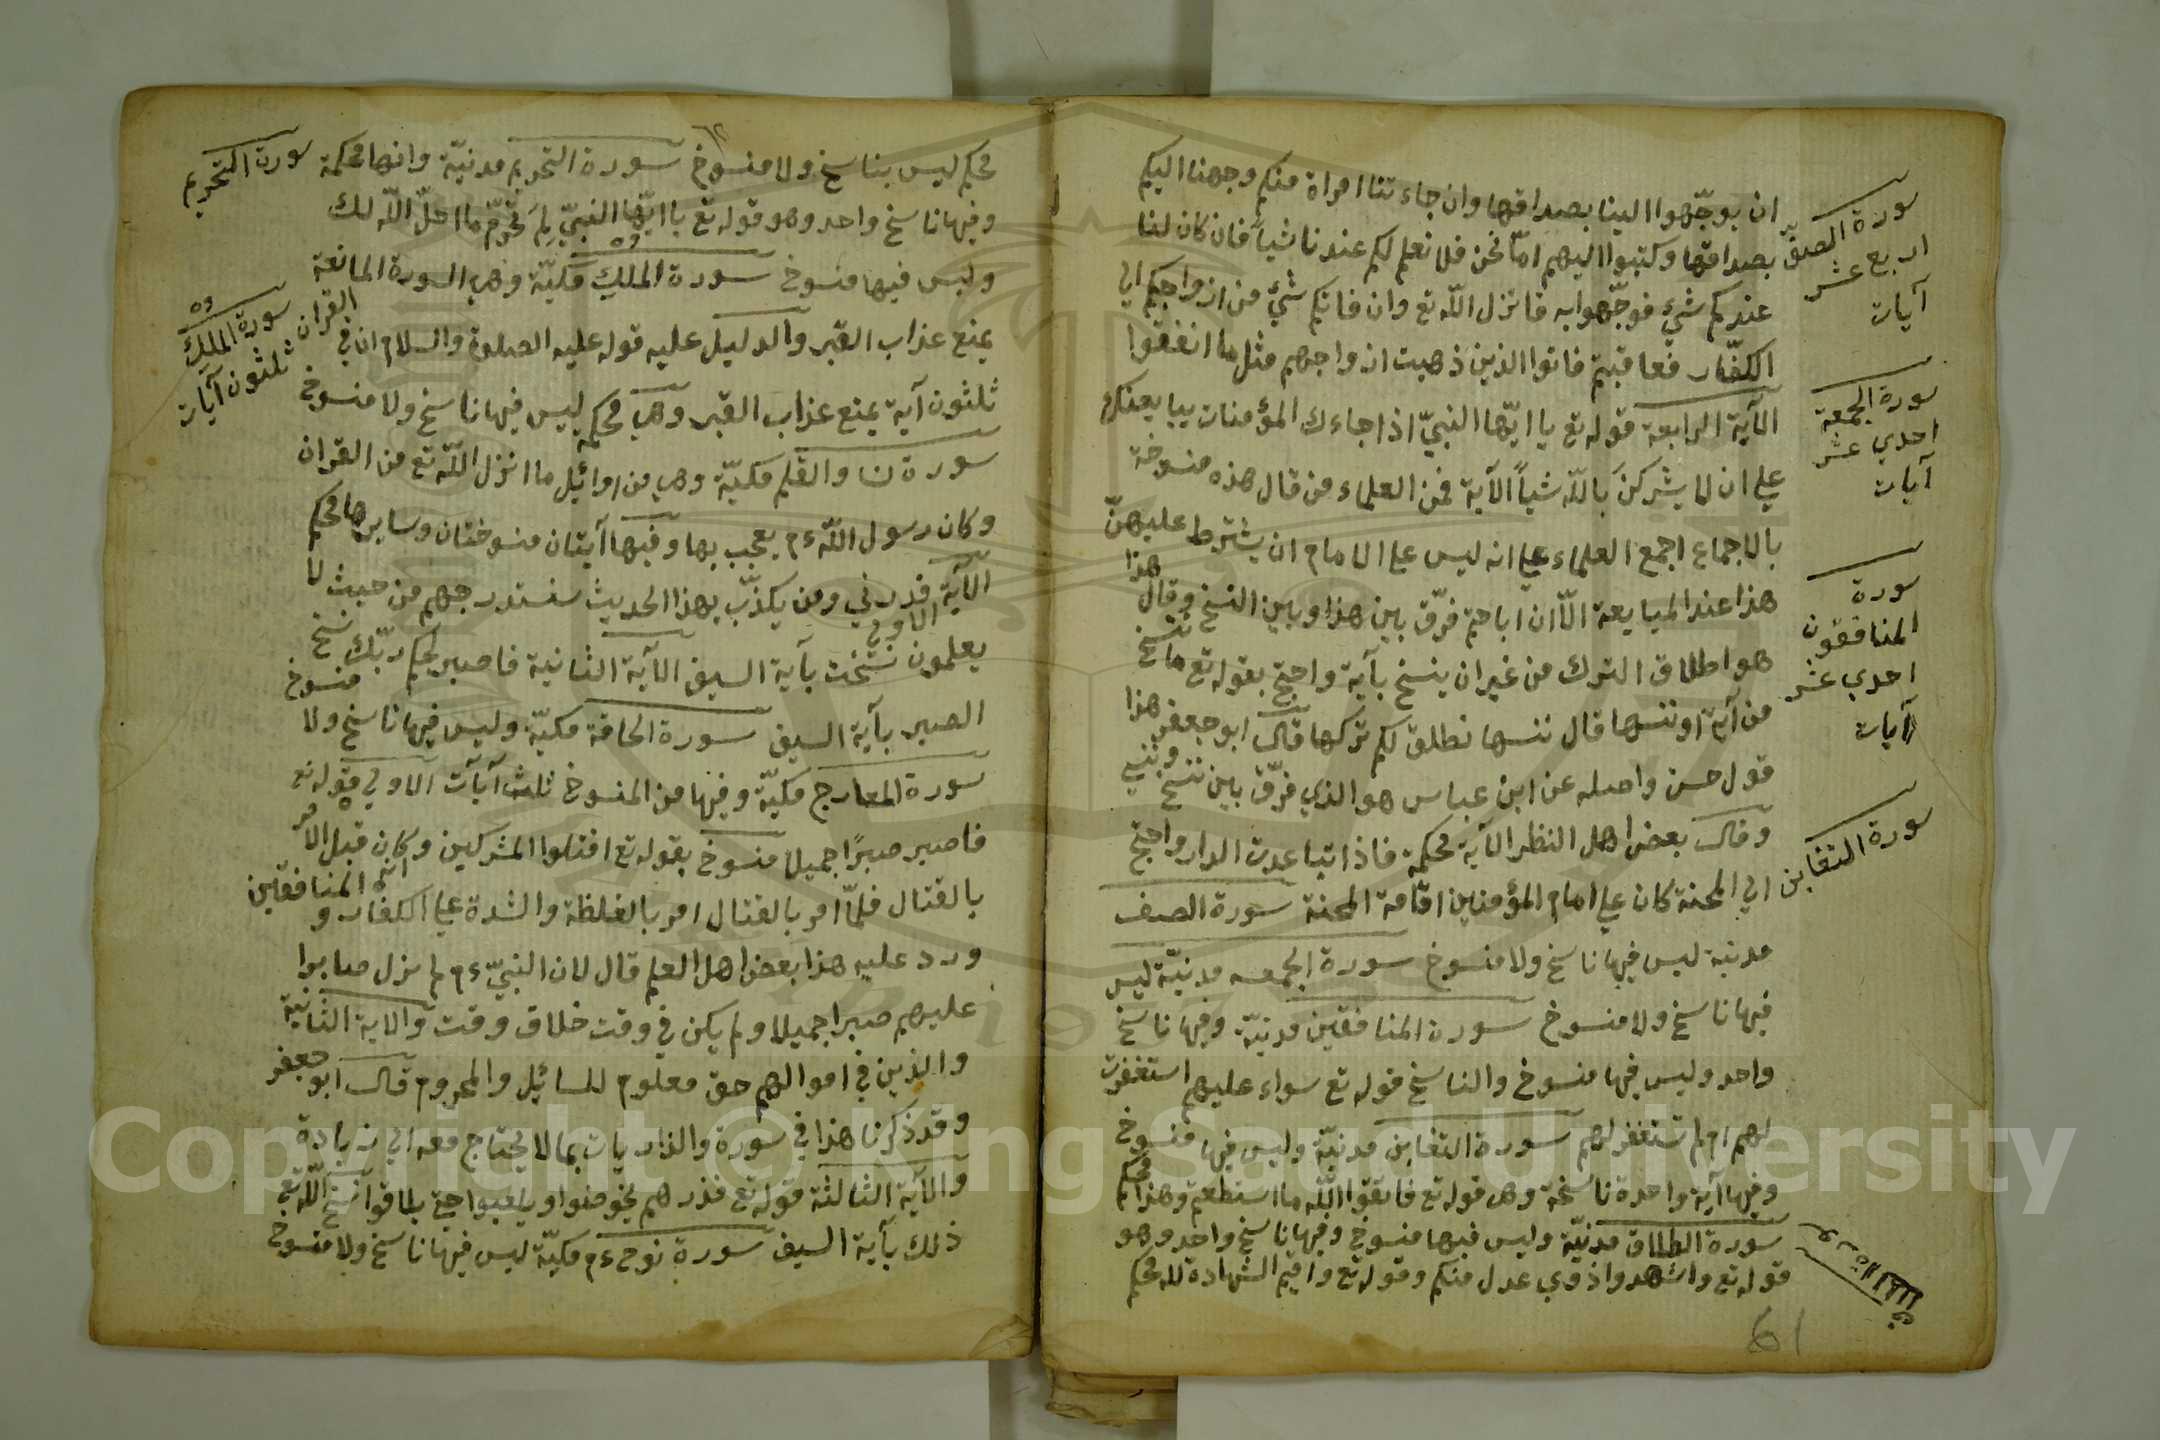 ان يوجّهوا الينا بصداقها وان جاءتنا امراة منكم وجهنا اليكم
بصداقها وكتبوا اليهم امّا نحن فلا نعلم لكم عندنا شياً فان كان لنا
عندكم شيء فوجّهوا به فانزل اللّه تع وان فاتكم شيٌ من ازواجكم الي
الكفّار فعاقبتم فاتوا الذين ذهبت ازواجهم مثل ما انفقوا
الآية الرابعة قوله تع يا ايّها النبيّ اذا جاءك المؤمنات يبايعنك
علي ان لا يشركن باللّه شياً الآية فمن العلماء من قال هذه منسوخة
بالاجماع اجمع العلماء علي انه ليس علي الامام ان يشترط عليهنّ
هذا عند المبايعة الّا ان اباحتم فرّق بين هذا وبين النسخ وقال هذا
هو اطلاق الترك من غير ان ينسخ بآية واحتج بقوله تع ما ننسخ
من آية او ننسها قال ننسها نطلق لكم تركها قال ابو جعفر هذا
قول حسن واصله عن ابن عباس هو الذي فرّق بين ننسخ وننسي
وقال بعض اهل النظر الآية محكمة فاذا تباعدت الدار واحتج
الي المحنة كان علي امام المؤمنين اقامة المحنة سورة الصف
مدنية ليس فيها ناسخ ولا منسوخ سورة الجمعه مدنيّة ليس
فيها ناسخ ولا منسوخ سورة المنافقين مدنيّة وفيها ناسخ
واحد وليس فيها منسوخ والناسخ قوله تع سواء عليهم استغفرت
لهم ام لم تستغفر لهم سورة التغابن مدنيّة وليس فيها منسوخ
وفيها آية واحدة ناسخة وهي قوله تع فاتقوا اللّه ما استطعتم وهذا محكم
سورة الطلاق مدنيّة وليس فيها منسوخ وفيها ناسخ واحد وهو
قوله تع واشهدوا ذوي عدل منكم وقوله تع واقيم الشهادة لله محكم
سورة الصفّ
اربع عشر
آيات
سورة الجمعة
احدي عشر
آيات
سورة
المنافقون
احدي عشر
آيات
سورة التغابن
61
محكم ليس بناسخ ولا منسوخ سورة التحريم مدنيّة وانها محكمة
وفيها ناسخ واحد وهو قوله تع يا ايّها النبيّ لِمَ تحرّم ما احلّ اللّه لك
وليس فيها منسوخ سورة الملك مكيّة وهي السورة المانعة
يمنع عذاب القبر والدليل عليه قوله عليه الصلوة والسلام ان في القران
ثلثون آية يمنع عذاب القبر وهي محكمة ليس فيها ناسخ ولا منسوخ
سورة ن والقلم مكيّة وهي من اوائيل ما انزل اللّه تع من القران
وكان رسول اللّه ءم يعجب بها وفيها آيتان منسوختان وسايرها محكم
الآية الاولي فذرني ومن يكذّب بهذا الحديث سنستدرجهم من حيث لا
يعلمون نسخت بآية السيف الآية الثانية فاصبر لحكم ربّك نسخ
الصبر بآية السيف سورة الحاقة مكيّة وليس فيها ناسخ ولا منسوخ
سورة المعارج مكيّة وفيها من المنسوخ ثلث آيآت الاولي قوله تع
فاصبر صبرًا جميلا منسوخ بقوله تع اقتلوا المشركين وكان قبل الامر
بالقتال فلمّا امر بالقتال امر بالغلظة والشدة علي الكفار و المنافقين
ورد عليه هذا بعض اهل العلم قال لان النبيّ ءم لم يزل صابرا
عليهم صبرا جميلا ولم يكن في وقت خلاف وقت والاية الثانية
والذين في اموالهم حق معلوم للسائيل والمحروم قال ابو جعفر
وقد ذكرنا هذا في سورة والذاريات بما لا يحتاج معه الي زيادة
والآية الثالثة قوله تع فذرهم يخوضوا ويلعبوا حتي يلاقوا نسخ اللّه تع
ذلك بآية السيف سورة نوح ءم مكيّة ليس فيها ناسخ ولا منسوخ
سورة التحريم
سورة الملك
ثلثون آيات
Copyright © King Saud University